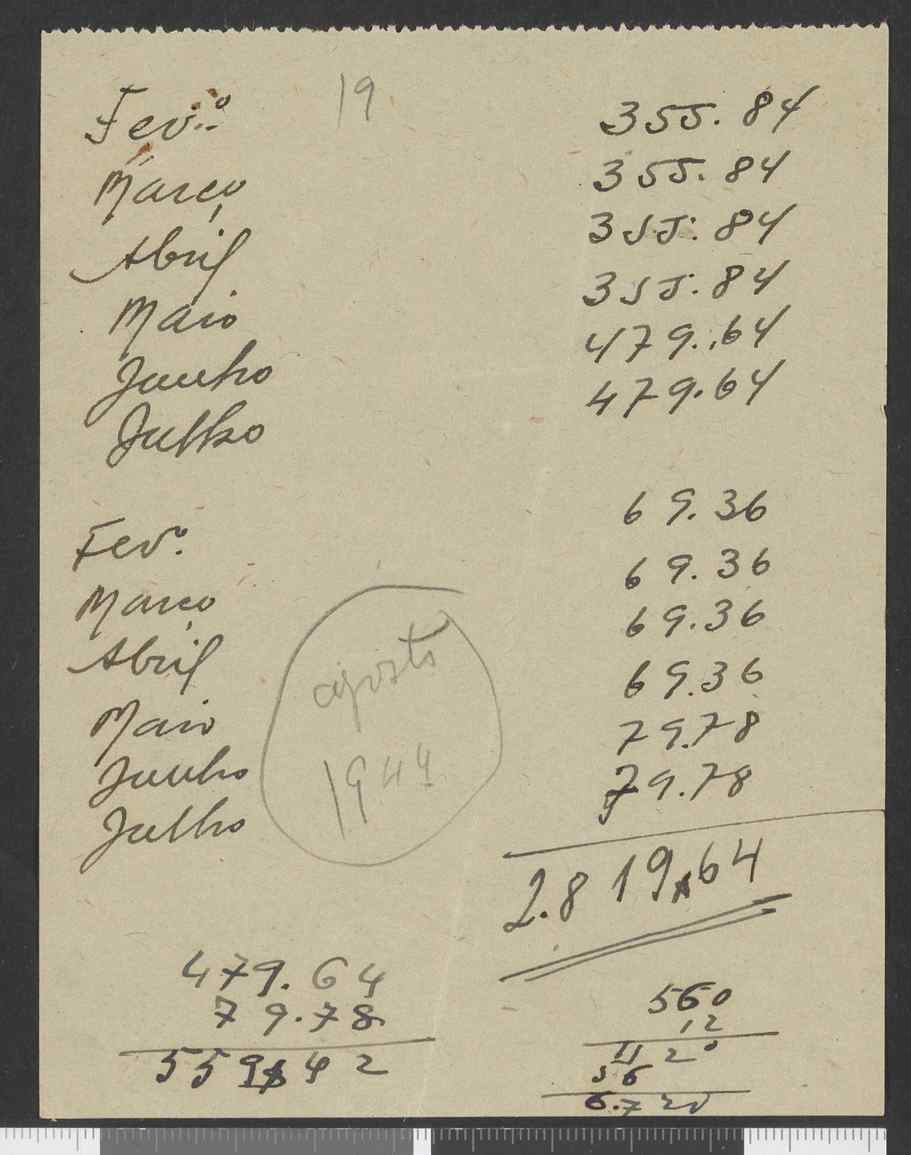 19
Fev.º 355.84
Março 355.84
Abril 355.84
Maio 355.84
Junho 479.64
Julho 479.64
Fev.º 69.36
Março 69.36
Abril 69.36
Maio 69.36
Junho 79.78
Julho 79.78
agosto
1944
2.819$64
479.64
79.78
559$42
560
12
1120
56
6.720